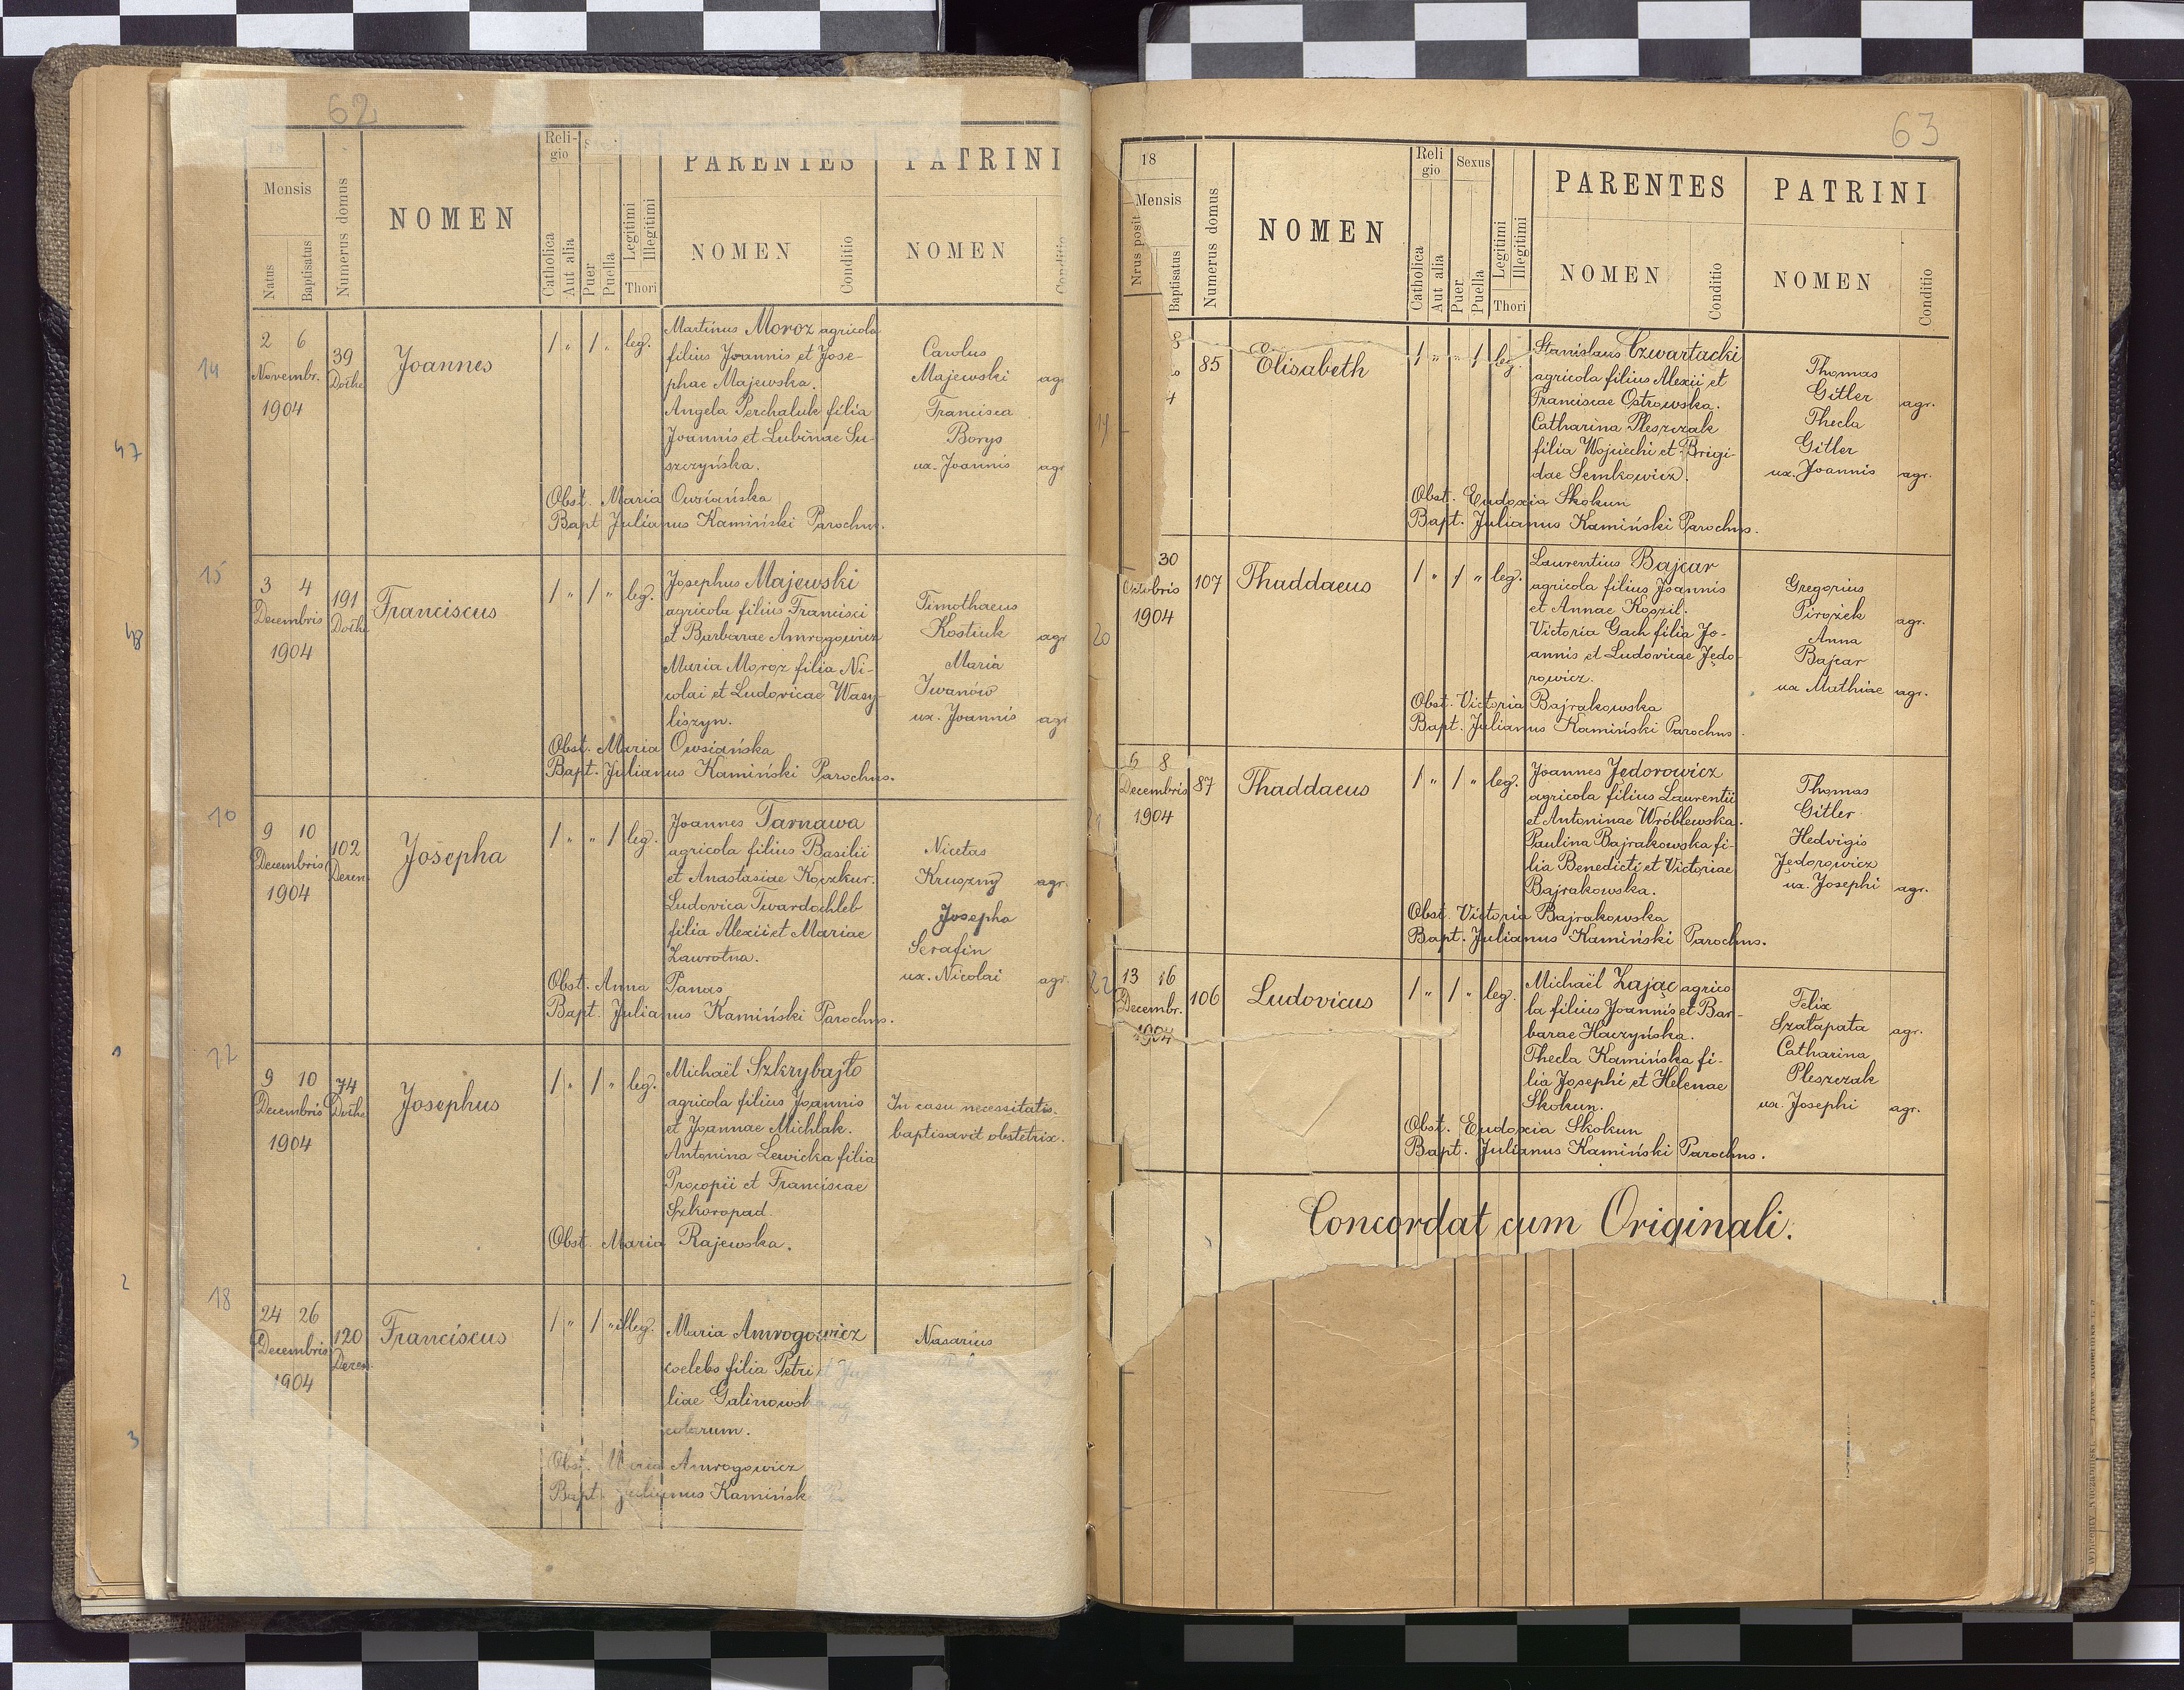 62
Mensis
Natus
Baptisatus
Numerus domus
NOMEN
Religio
Catholica
Aut alia
Puer
Puella
Legitimi
Illegitimi
Thori
PARENTES
NOMEN
Conditio
PATRINI
NOMEN
14
2 6
Novembr.
1904
39
Joannes
1 " 1 " leg.
Martinus Moroz agricola
filius Joannis et Jose-
phae Majewska.
Angela Perchaluk filia
Joannis et Lubinae Su-
szczyńska.
Carolus
Majewski agr
Francisca
Borys
ux. Joannis agr
Obst. Maria Owsiańska
Bapt. Julianus Kamiński Parochus.
47
15
3 4
Decembris
1904
191
Franciscus
1 " 1 " leg.
Josephus Majewski
agricola filius Francisci
et Barbarae Amrogowicz
Maria Moroz filia Ni-
colai et Ludovicae Wasy-
liszyn.
Timothaeus
Kostiuk agr
Maria
Iwanów
ux. Joannis agr
Obst. Maria Owsiańska
Bapt. Julianus Kamiński Parochus.
48
10
9 10
Decembris
1904
102
Deren.
Josepha
1 " " 1 leg.
Joannes Tarnawa
agricola filius Basilii
et Anastasiae Koczkur.
Ludovica Twardochleb
filia Alexii et Mariae
Zawrotna.
Nicetas
Kruszny agr.
Josepha
Serafin
ux. Nicolai agr.
Obst. Anna Panas
Bapt. Julianus Kamiński Parochus.
9 10
Decembris
1904
74
Josephus
1 " 1 " leg.
Michaël Szkrybajło
agricola filius Joannis
et Joannae Michlak.
Antonina Lewicka filia
Procopii et Franciscae
Szkoropad.
In casu necessitatis
baptisavit obstetrix.
Obst. Maria Rajewska.
2
18
24 26
Decembris
1904
120
Deren.
Franciscus
1 " 1 " illeg.
Maria Amrogowicz
coelebs filia Petri et Ju
liae Galinowsk
colarum.
Nasarius
Obst. Maria Amrogowicz
Bapt. Julianus Kamińsk
3
63
18
Mensis
Nrus posit
Baptisatus
Numerus domus
NOMEN
Religio
Catholica
Aut alia
Sexus
Puer
Puella
Legitimi
Illegitimi
Thori
PARENTES
NOMEN
Conditio
PATRINI
NOMEN
Conditio
19
8
4
85
Elisabeth
1 " " 1 leg.
Stanislaus Czwartacki
agricola filius Alexii et
Franciscae Ostrowska.
Catharina Pleszczak
filia Wojciechi et Brigi-
dae Semkowicz.
Thomas
Gitler agr.
Thecla
Gitler
ux. Joannis agr.
Obst. Eudoxia Skokun
Bapt. Julianus Kamiński Parochus.
20
30
Octobris
1904
107
Thaddaeus
1 " 1 " leg.
Laurentius Bajcar
agricola filius Joannis
et Annae Kopzil.
Victoria Gach filia Jo-
annis et Ludovicae Jędo-
rowicz.
Gregorius
Pirożek agr.
Anna
Bajcar
ux Mathiae agr.
Obst. Victoria Bajrakowska
Bapt. Julianus Kamiński Parochus.
6 8
Decembris
1904
87
Thaddaeus
1 " 1 " leg.
Joannes Jędorowicz
agricola filius Laurentii
et Antoninae Wróblewska.
Paulina Bajrakowska fi-
lia Benedicti et Victoriae
Bajrakowska.
Thomas
Gitler
Hedvigis
Jędorowicz
ux. Josephi agr.
Obst. Victoria Bajrakowska
Bapt. Julianus Kamiński Parochus.
22
13 16
Decembr.
1904
106
Ludovicus
1 " 1 " leg.
Michaël Zając agrico-
la filius Joannis et Bar-
barae Haczyńska.
Thecla Kamińska fi-
lia Josephi et Helenae
Skokun.
Felix
Szałapata agr.
Catharina
Pleszczak
ux. Josephi agr.
Obst. Eudoxia Skokun
Bapt. Julianus Kamiński Parochus.
Concordat cum Originali.